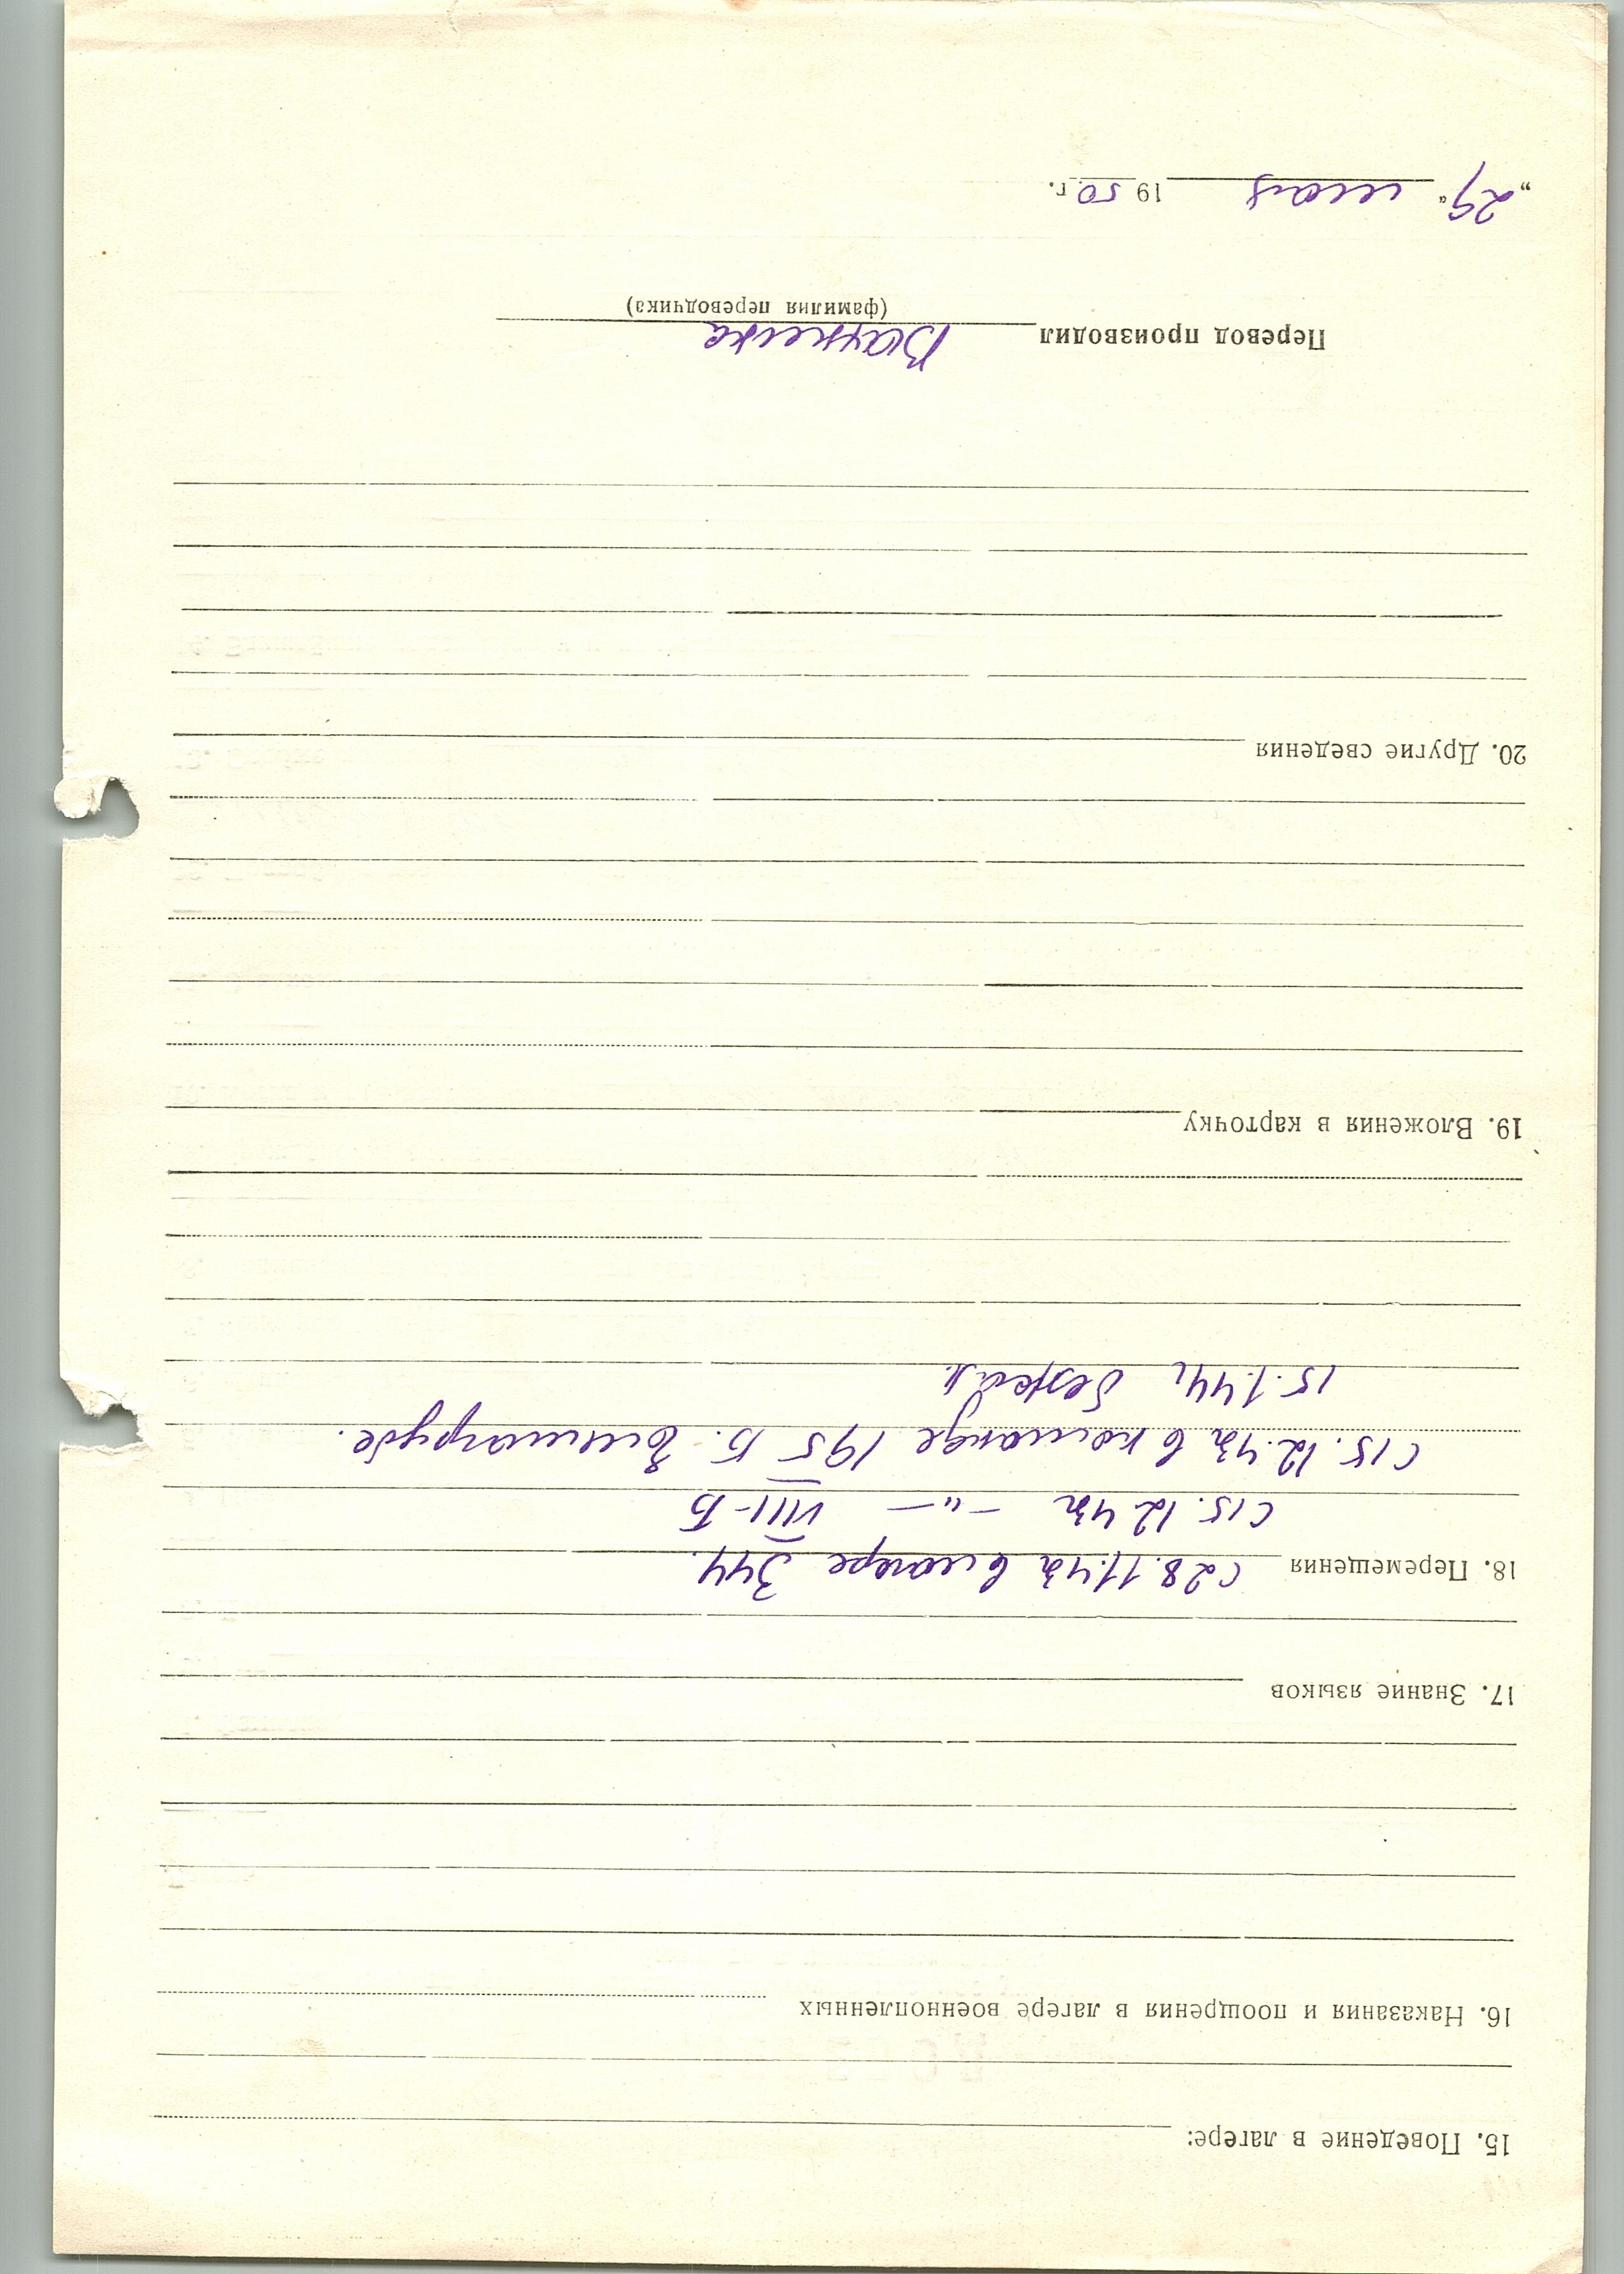 15. Поведение в лагере:
16. Наказания и поощрения в лагере военнопленных
17. Знание языков
18. Перемещения с 28.11.43г в лагере 344.
с 15.12.43г —"— VIII-Б
с 15.12.43г в команде 195 Б.
15.1.44г бежал.
19. Вложения в карточку
20. Другие сведения
Перевод производил
(фамилия переводчика)
„29“ мая 1950 г.